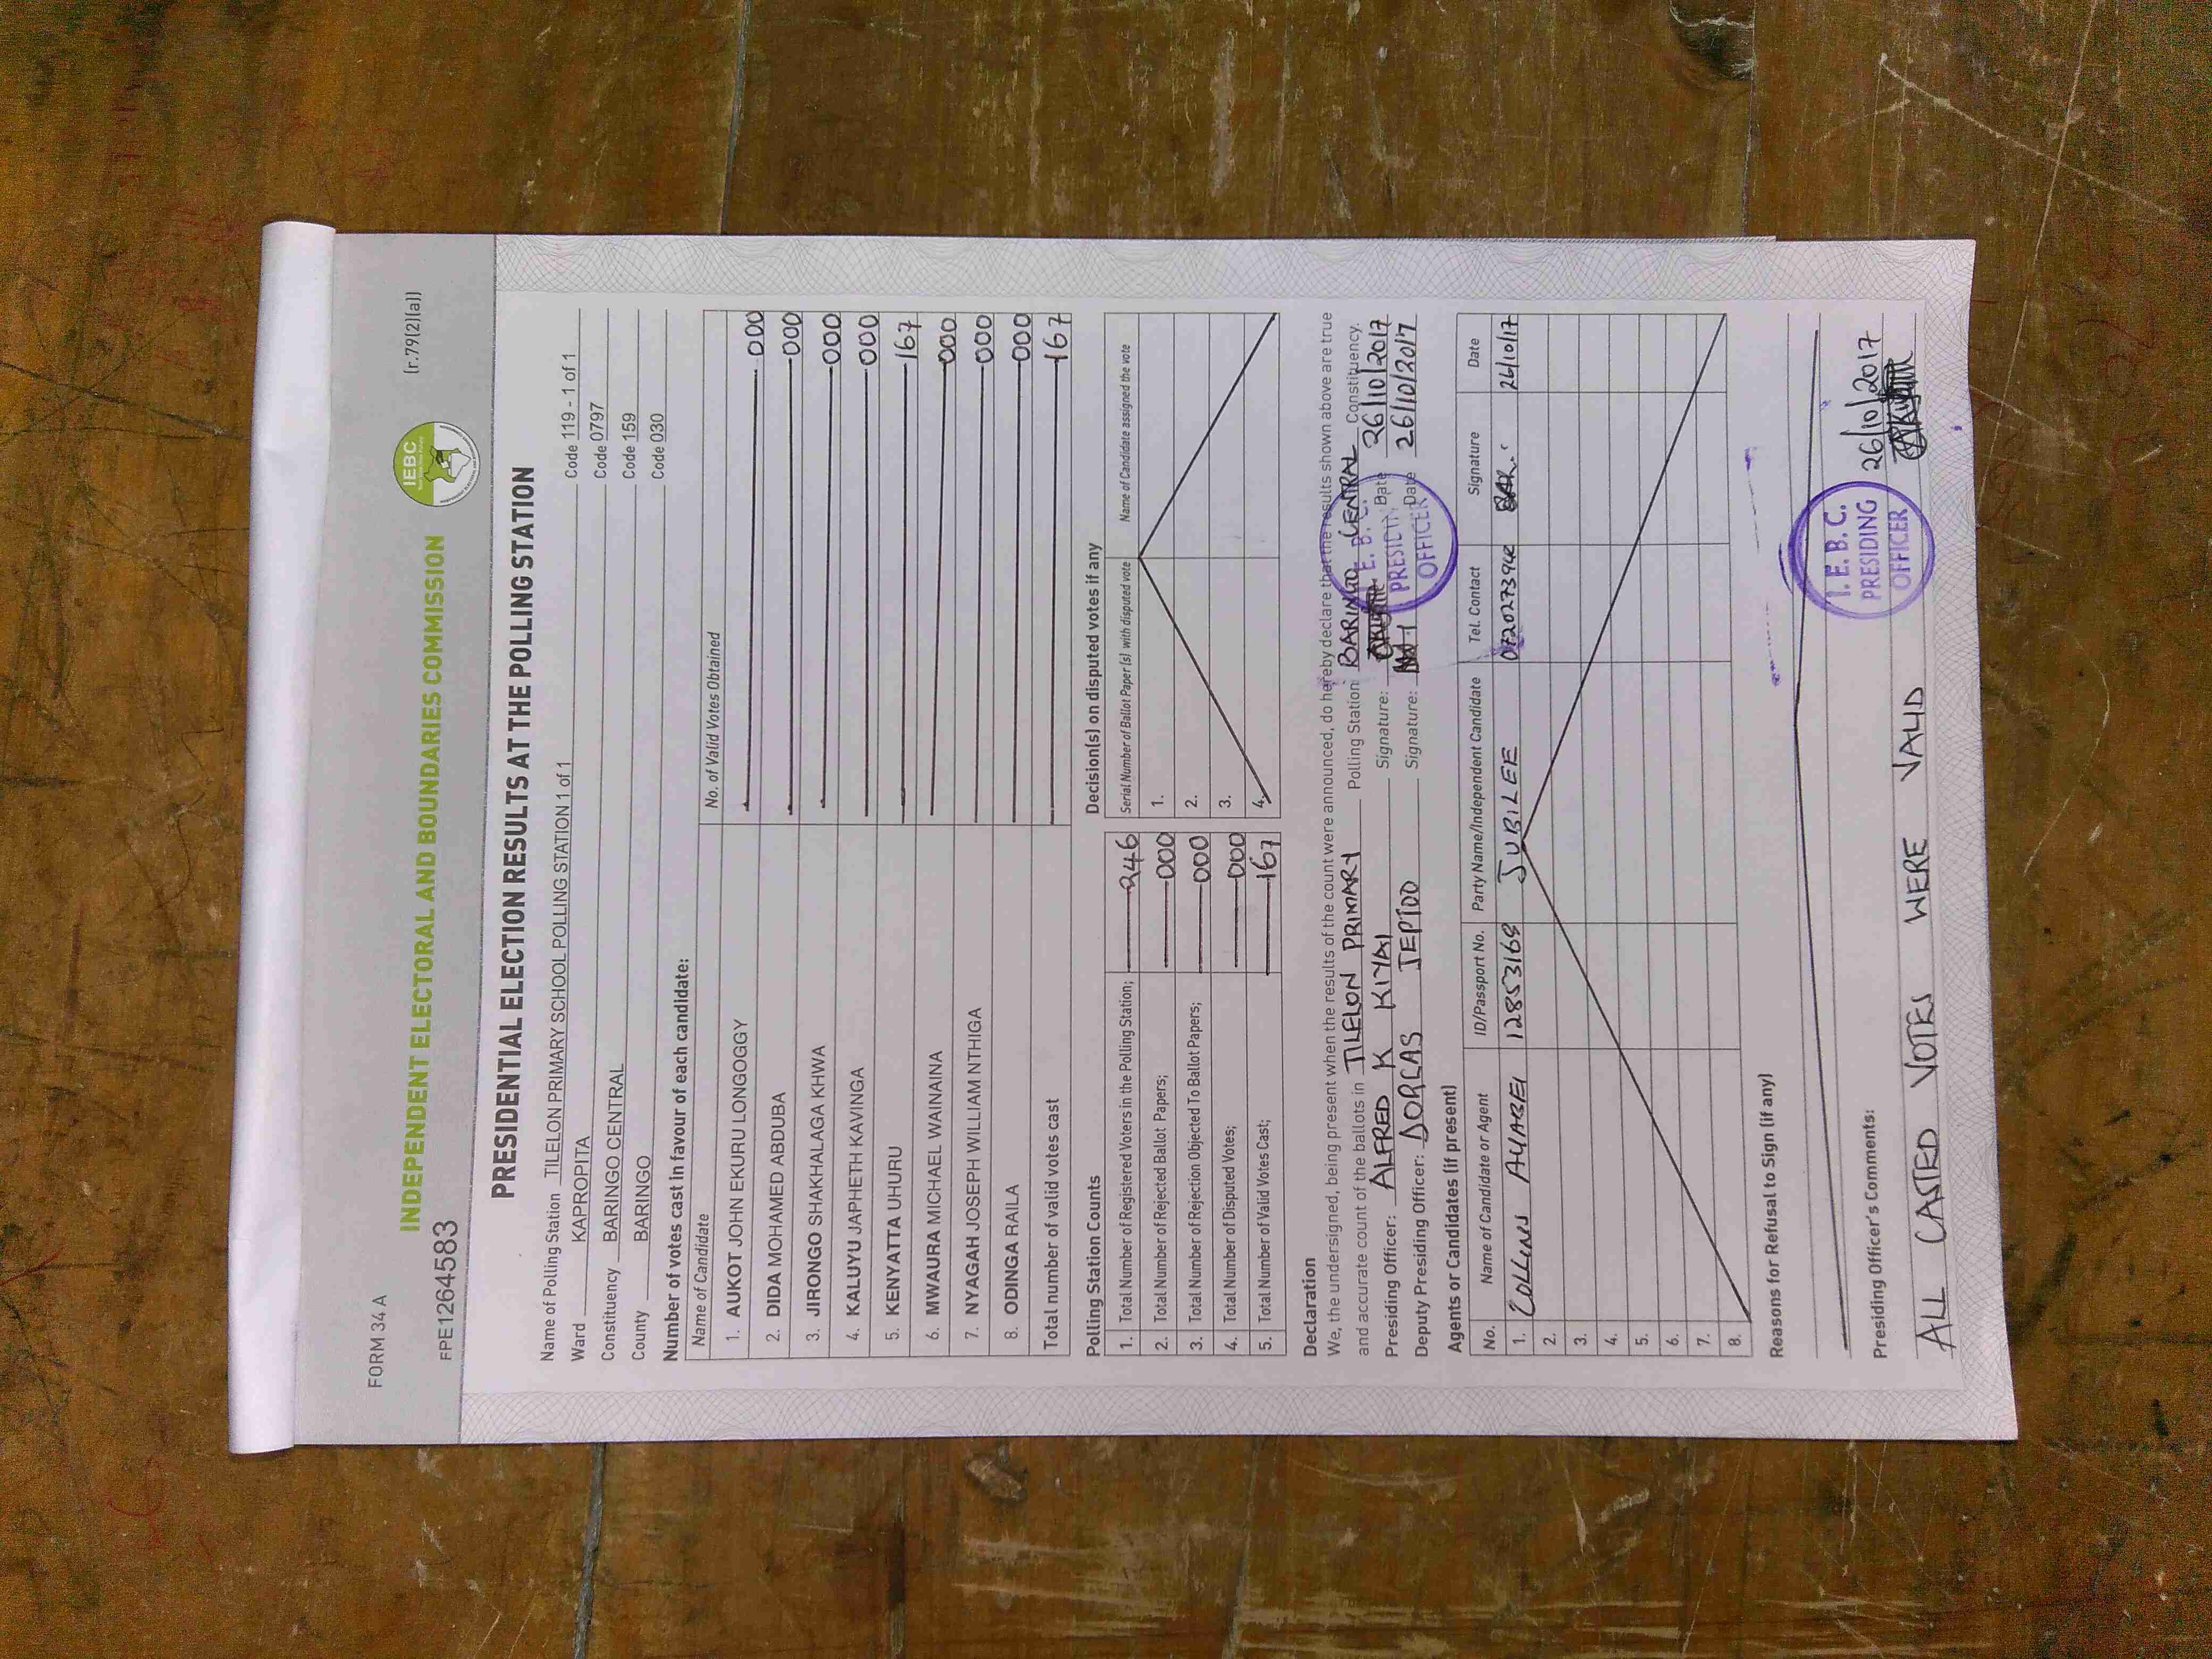 FORM 34 A
(r.79(2)(a))
IEBC
INDEPENDENT ELECTORAL AND BOUNDARIES COMMISSION
FPE1264583
PRESIDENTIAL ELECTION RESULTS AT THE POLLING STATION
Name of Polling Station TILELON PRIMARY SCHOOL POLLING STATION 1 of 1 Code 119 - 1 of 1
Ward KAPROPITA Code 0797
Constituency BARINGO CENTRAL Code 159
County BARINGO Code 030
Number of votes cast in favour of each candidate:
Name of Candidate No. of Valid Votes Obtained
1. AUKOT JOHN EKURU LONGOGGY 000
2. DIDA MOHAMED ABDUBA 000
3. JIRONGO SHAKHALAGA KHWA 000
4. KALUYU JAPHETH KAVINGA 000
5. KENYATTA UHURU 167
6. MWAURA MICHAEL WAINAINA 000
7. NYAGAH JOSEPH WILLIAM NTHIGA 000
8. ODINGA RAILA 000
Total number of valid votes cast 167
Polling Station Counts
1. Total Number of Registered Voters in the Polling Station; 246
2. Total Number of Rejected Ballot Papers; 000
3. Total Number of Rejection Objected To Ballot Papers; 000
4. Total Number of Disputed Votes; 000
5. Total Number of Valid Votes Cast; 167
Decision(s) on disputed votes if any
Serial Number of Ballot Paper(s) with disputed vote Name of Candidate assigned the vote
1.
2.
3.
4.
Declaration
We, the undersigned, being present when the results of the count were announced, do hereby declare that the results shown above are true
and accurate count of the ballots in TILELON PRIMARY Polling Station BARINGO CENTRAL Constituency.
Presiding Officer: ALFRED K KIYAI Signature: Date 26/10/2017
Deputy Presiding Officer: DORCAS JEPTOO Signature: Date 26/10/2017
I. E. B. C.
PRESIDING
OFFICER
Agents or Candidates (if present)
No. Name of Candidate or Agent ID/Passport No. Party Name/Independent Candidate Tel. Contact Signature Date
1. COLLINS 12853169 JUBILEE 26/10/17
2.
3.
4.
5.
6.
7.
8.
Reasons for Refusal to Sign (if any)
Presiding Officer's Comments:
ALL CASTED VOTES WERE VALID
I. E. B. C.
PRESIDING
OFFICER
26/10/2017